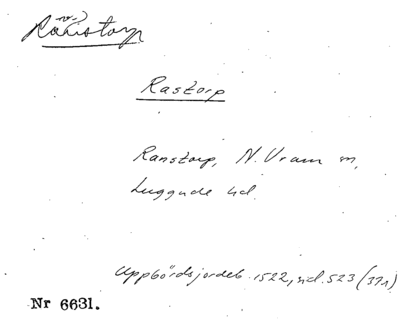 Rastorp
Ranstorp, N. Vram sn,
Luggude hd.
Uppbördsjordeb. 1522, sid. 523 (371)
Nr 6631.